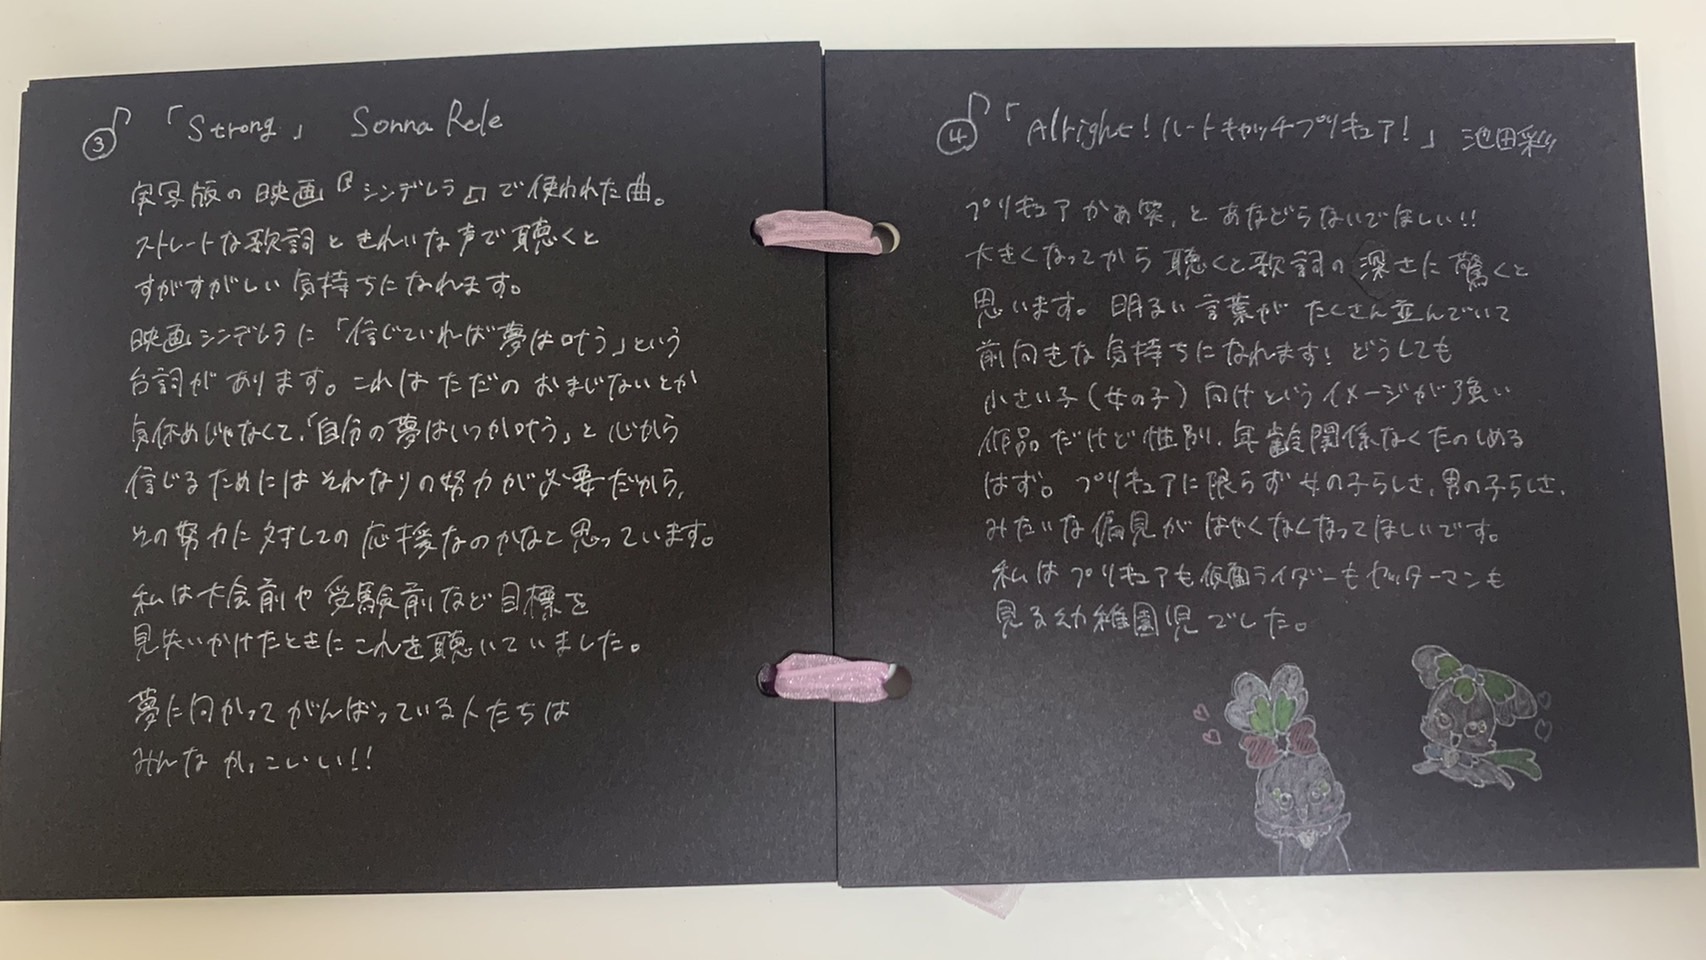 ③ 「Strong」 Sonna Rele
実写版の映画『シンデレラ』で使われた曲。
ストレートな歌詞ときれいな声で聴くと
すがすがしい気持ちになれます。
映画シンデレラに「信じていれば夢は叶う」という
台詞があります。これはただのおまじないとか
気休めじゃなくて、「自分の夢はいつか叶う」と心から
信じるためにはそれなりの努力が必要だから、
その努力に対しての応援なのかなと思っています。
私は大会前や受験前など目標を
見失いかけたときにこれを聴いていました。
夢に向かってがんばっている人たちは
みんなかっこいい!!
④ 「Alright! ハートキャッチプリキュア!」 池田彩
プリキュアかぁ笑、とあなどらないでほしい!!
大きくなってから聴くと歌詞の深さに驚くと
思います。明るい言葉がたくさん並んでいて
前向きな気持ちになれます! どうしても
小さい子(女の子)向けというイメージが強い
作品だけど性別、年齢関係なくたのしめる
はず。プリキュアに限らず女の子らしさ、男の子らしさ、
みたいな偏見がはやくなくなってほしいです。
私はプリキュアも仮面ライダーもヤッターマンも
見る幼稚園児でした。